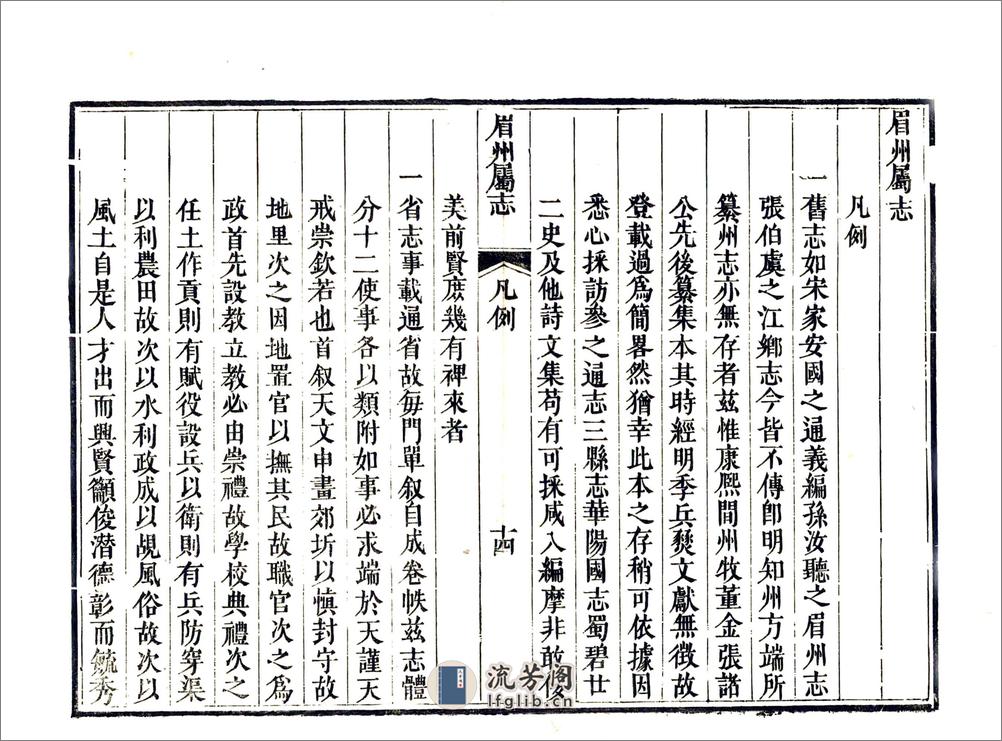 眉州屬志
凡例
一舊志如宋家安國之通義編孫汝聽之眉州志
張伯虞之江鄉志今皆不傳卽明知州方端所
纂州志亦無存者茲惟康熙間州牧董金張諸
公先後纂集本其時經明季兵燹文獻無徵故
登載過爲簡畧然猶幸此本之存稍可依據因
悉心採訪參之通志三縣志華陽國志蜀碧廿
二史及他詩文集苟有可採咸入編摩非敢後
眉州屬志
凡例
十四
美前賢庶幾有裨來者
一省志事載通省故每門單叙自成卷帙茲志體
分十二使事各以類附如事必求端於天謹天
戒崇欽若也首叙天文申畫郊圻以慎封守故
地里次之因地置官以撫其民故職官次之爲
政首先設教立教必由崇禮故學校典禮次之
任土作貢則有賦役設兵以衛則有兵防穿渠
以利農田故次以水利政成以覘風俗故次以
風土自是人才出而興賢籲俊潛德彰而毓秀
流芳阁
lfglib.cn